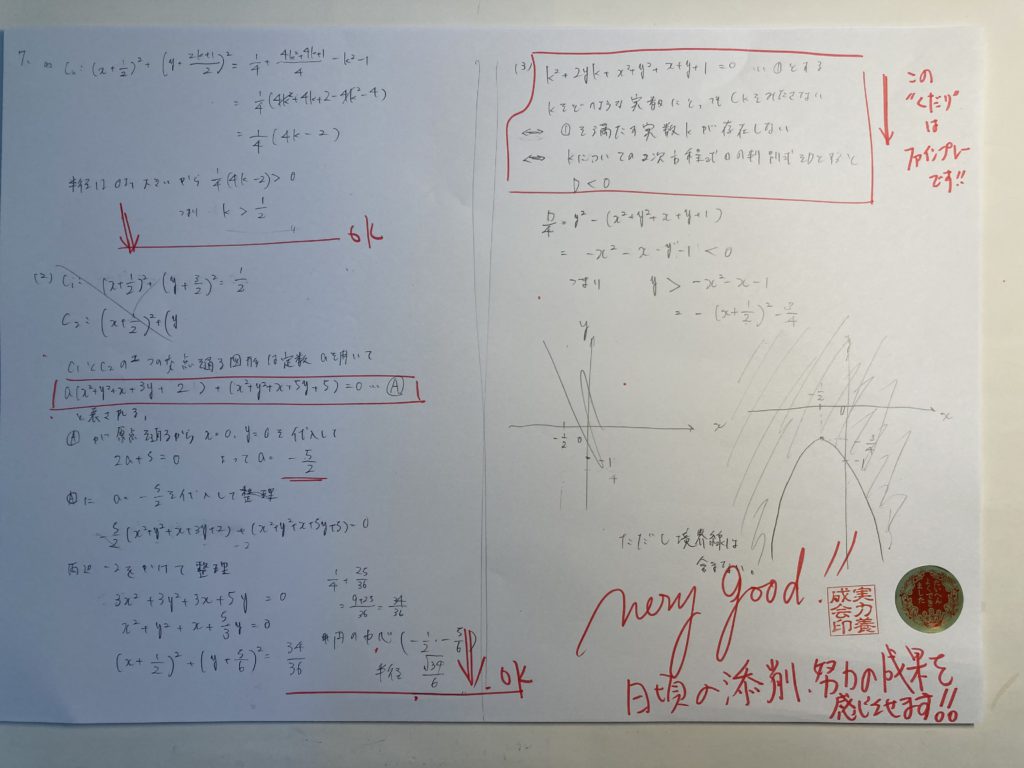 7. (1) Cₖ: (x+1/2)²+(y+(2k+1)/2)² = 1/4 + (4k²+4k+1)/4 - k²-1
= 1/4(4k²+4k+2-4k²-4)
= 1/4(4k-2)
半径は0より大きいから 1/4(4k-2)>0
つまり k > 1/2
OK
(2) C₁: (x+1/2)²+(y+3/2)² = 1/2
C₂: (x+1/2)²+(y
C₁とC₂の2つの交点を通る図形は定数aを用いて
a(x²+y²+x+3y+2)+(x²+y²+x+5y+5)=0 … Ⓐ
と表される。
Ⓐが原点を通るから x=0, y=0を代入して
2a+5=0 よって a = -5/2
Ⓐに a=-5/2を代入して整理
-5/2(x²+y²+x+3y+2)+(x²+y²+x+5y+5)=0
両辺 -2をかけて整理
3x²+3y²+3x+5y=0
x²+y²+x+5/3y=0
(x+1/2)²+(y+5/6)² = 34/36
1/4+25/36
=(9+25)/36=34/36
円の中心(-1/2, -5/6)
半径 √34/6
OK
(3) k²+2yk+x²+y²+x+y+1=0 … ①とする
kをどのような実数にとってもCₖをみたさない
⇔ ①を満たす実数kが存在しない
⇔ kについての2次方程式①の判別式をDとすると
D<0
この
"くだり"
は
ファインプレー
です!!
D/4=y²-(x²+y²+x+y+1)
= -x²-x-y-1<0
つまり y > -x²-x-1
= -(x+1/2)²-3/4
y
-1/2
0
-1
x
-1/2
0
x
-3/4
-1
ただし境界線は
含まない。
very good!!
実力養
成会印
日頃の添削、努力の成果を
感じさせます!!